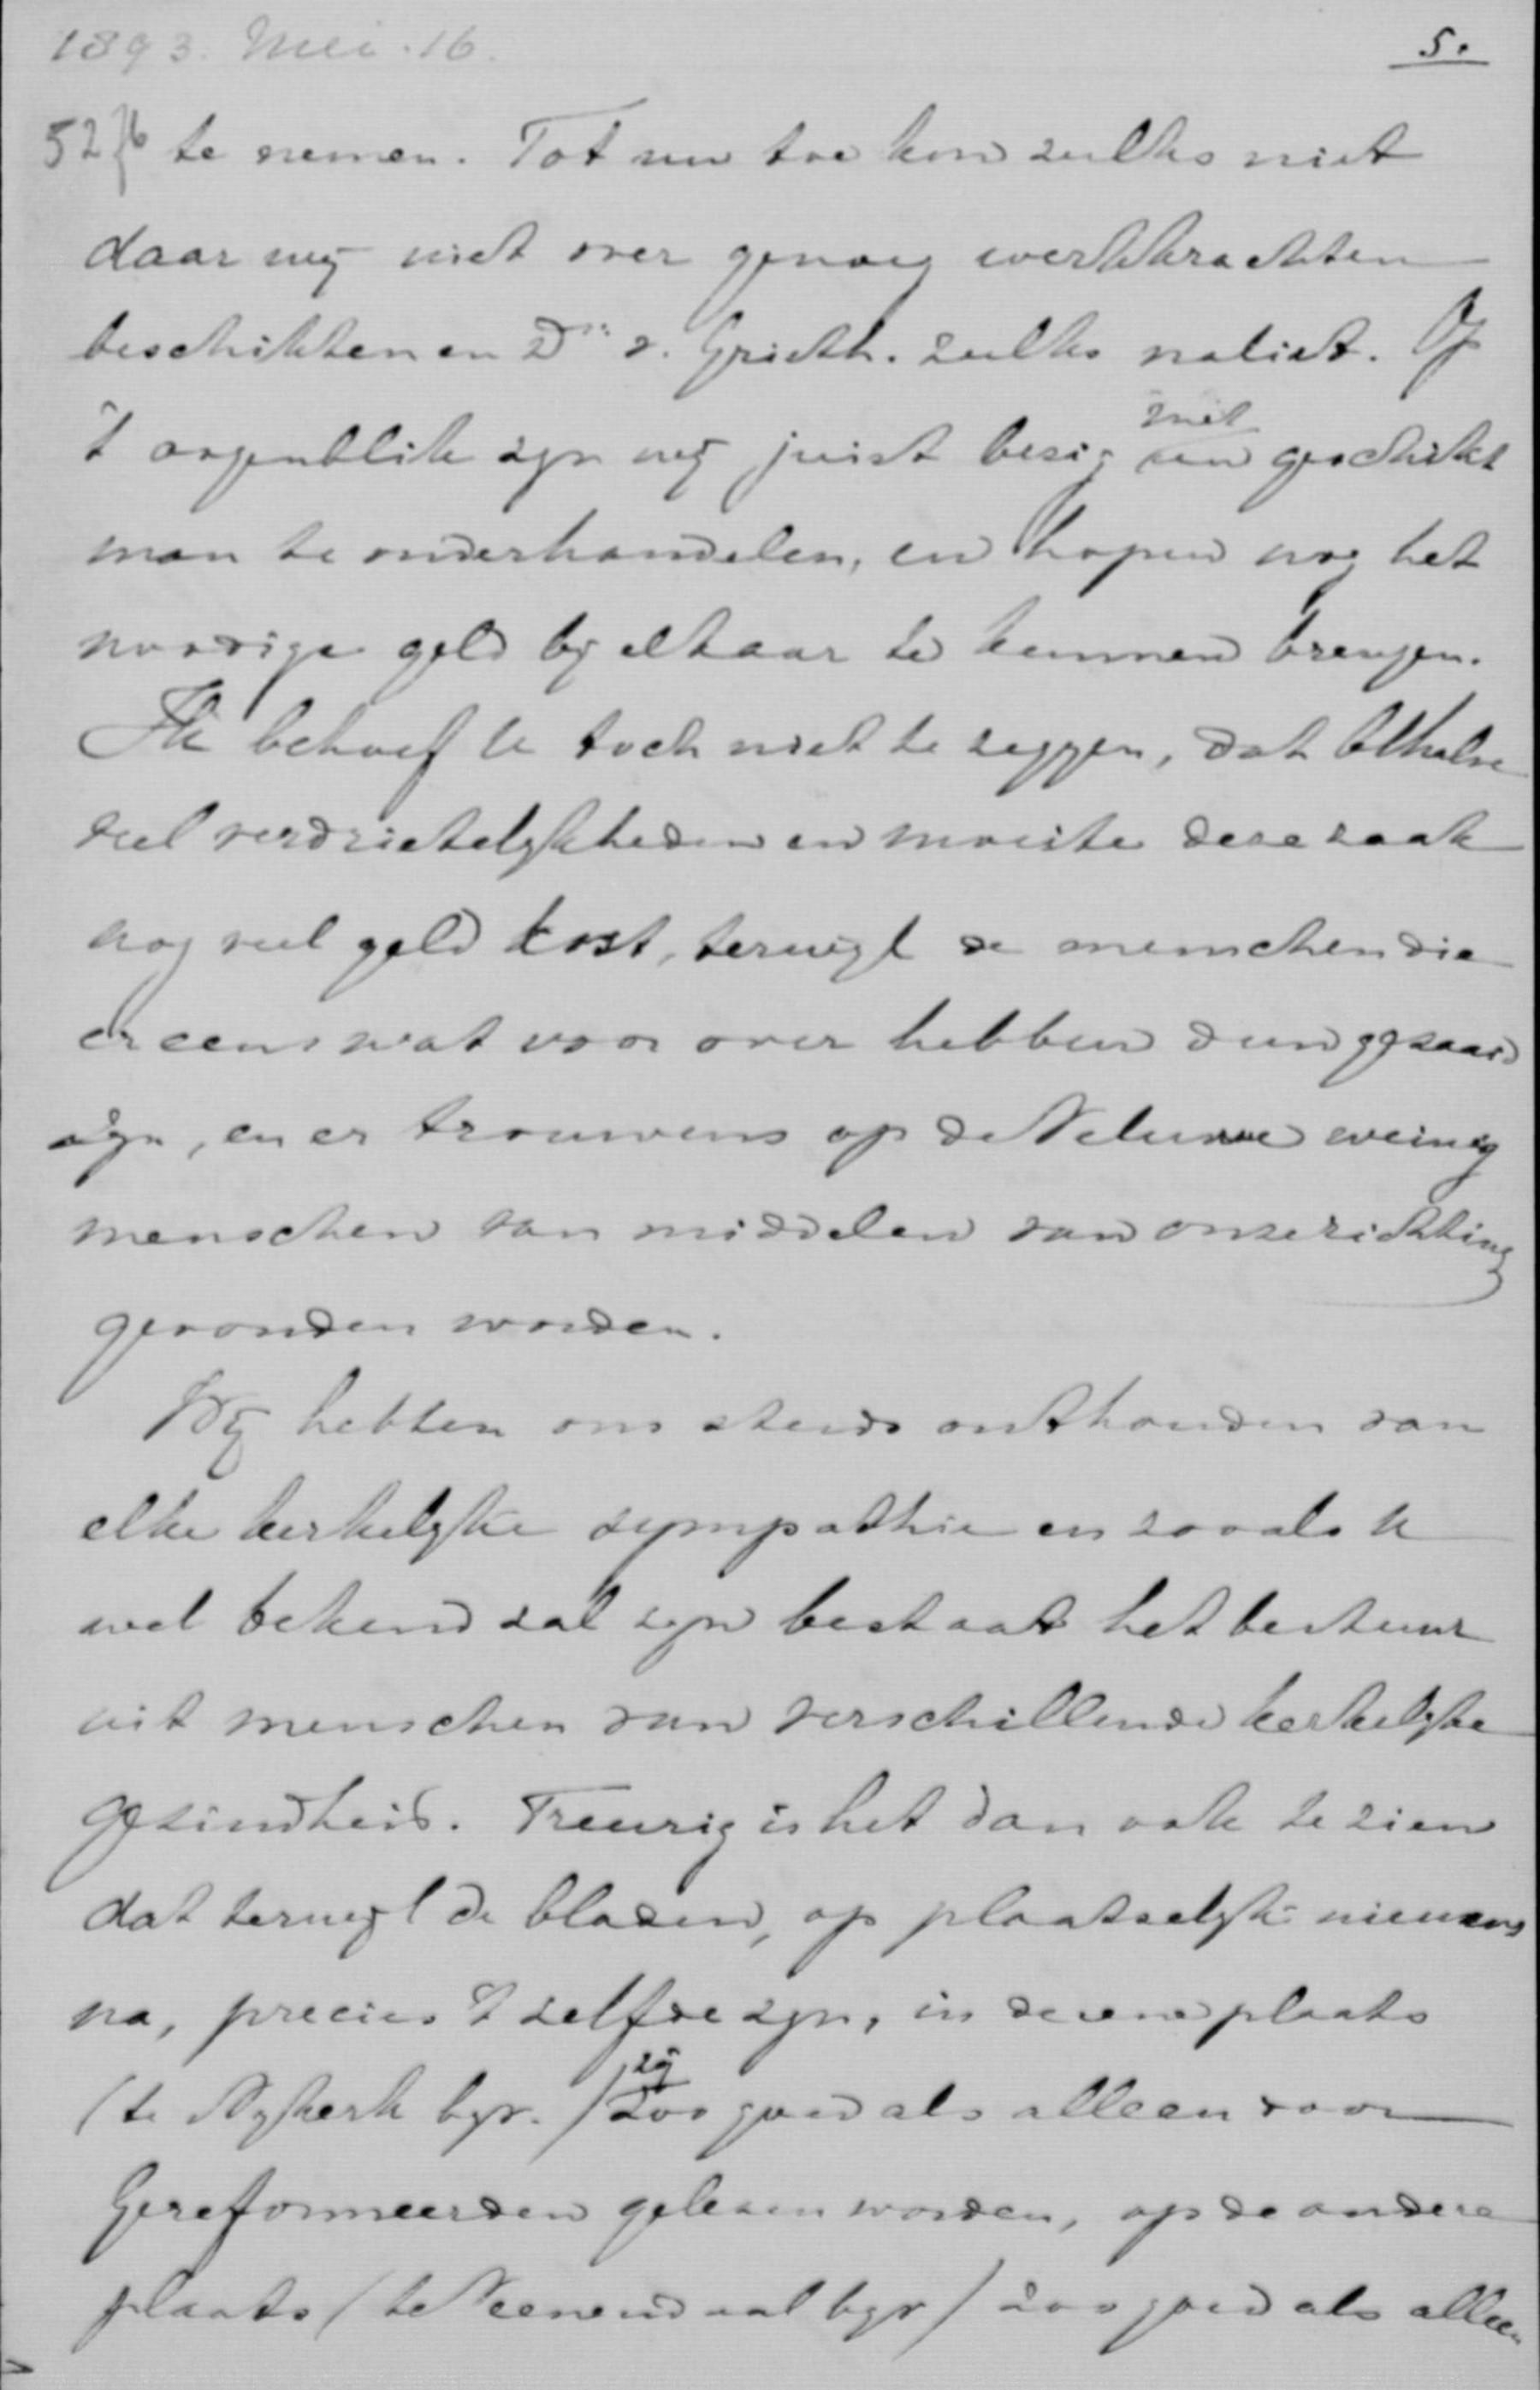 1893. Mei. 16.
5.
52 76 te nemen. Tot nu toe kon zulks niet
daar wij niet over genoeg werkkrachten
beschikten en Ds v. Grieth. zulks naliet. Op
't oogenblik zijn wij juist bezig met een geschikt
man te onderhandelen, en hopen nog het
noodige geld bij elkaar te kunnen brengen.
Ik behoef U toch niet te zeggen, dat behalve
veel verdrietelijkheden en moeite deze zaak
nog veel geld kost, terwijl de menschen die
er eens wat voor over hebben dun gezaaid
zijn, en er trouwens op de Veluwe weinig
menschen van middelen van onze richting
gevonden worden.
Wij hebben ons steeds onthouden van
elke kerkelijke sympathie en zooals U
wel bekend zal zijn bestaat het bestuur
uit menschen van verschillende kerkelijke
gezindheid. Treurig is het dan ook te zien
dat terwijl de bladen, op plaatselijk nieuws
na, precies 't zelfde zijn, in de eene plaats
(te Nijkerk bijv.) zij zoo goed als alleen voor
Gereformeerden gelezen worden, op de andere
plaats (te Veenendaal bijv) zoo goed als alleen